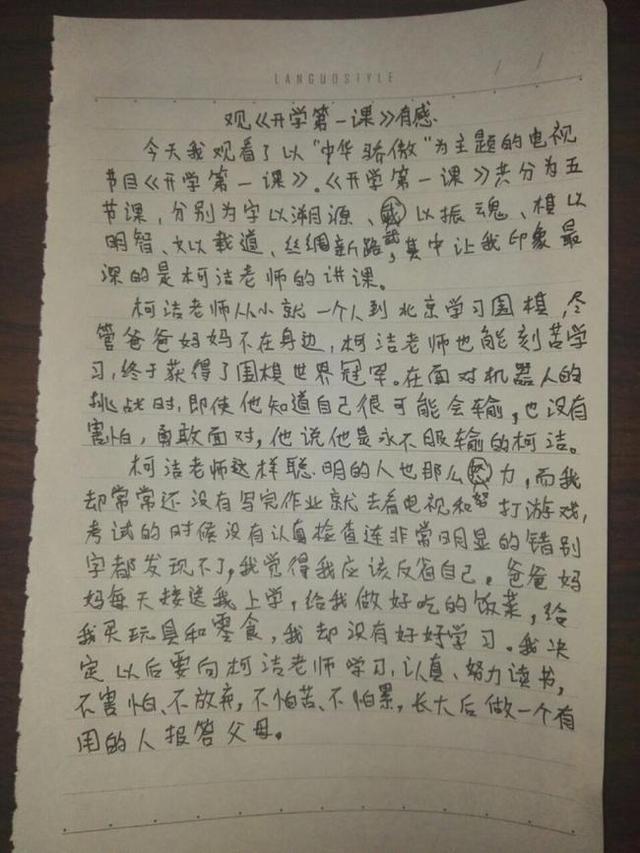 LANGUOSTYLE
观《开学第一课》有感
今天我观看了以“中华骄傲”为主题的电视
节目《开学第一课》。《开学第一课》共分为五
节课，分别为字以溯源、武以振魂、棋以
明智、文以载道、丝绸新路，其中让我印象最
深的是柯洁老师的讲课。
柯洁老师从小就一个人到北京学习围棋，尽
管爸爸妈妈不在身边，柯洁老师也能刻苦学
习，终于获得了围棋世界冠军。在面对机器人的
挑战时，即使他知道自己很可能会输，也没有
害怕，勇敢面对，他说他是永不服输的柯洁。
柯洁老师这样聪明的人也那么努力，而我
却常常还没有写完作业就去看电视和打游戏，
考试的时候没有认真检查连非常明显的错别
字都发现不了，我觉得我应该反省自己。爸爸妈
妈每天接送我上学，给我做好吃的饭菜，给
我买玩具和零食，我却没有好好学习。我决
定以后要向柯洁老师学习，认真、努力读书，
不害怕、不放弃，不怕苦、不怕累，长大后做一个有
用的人报答父母。